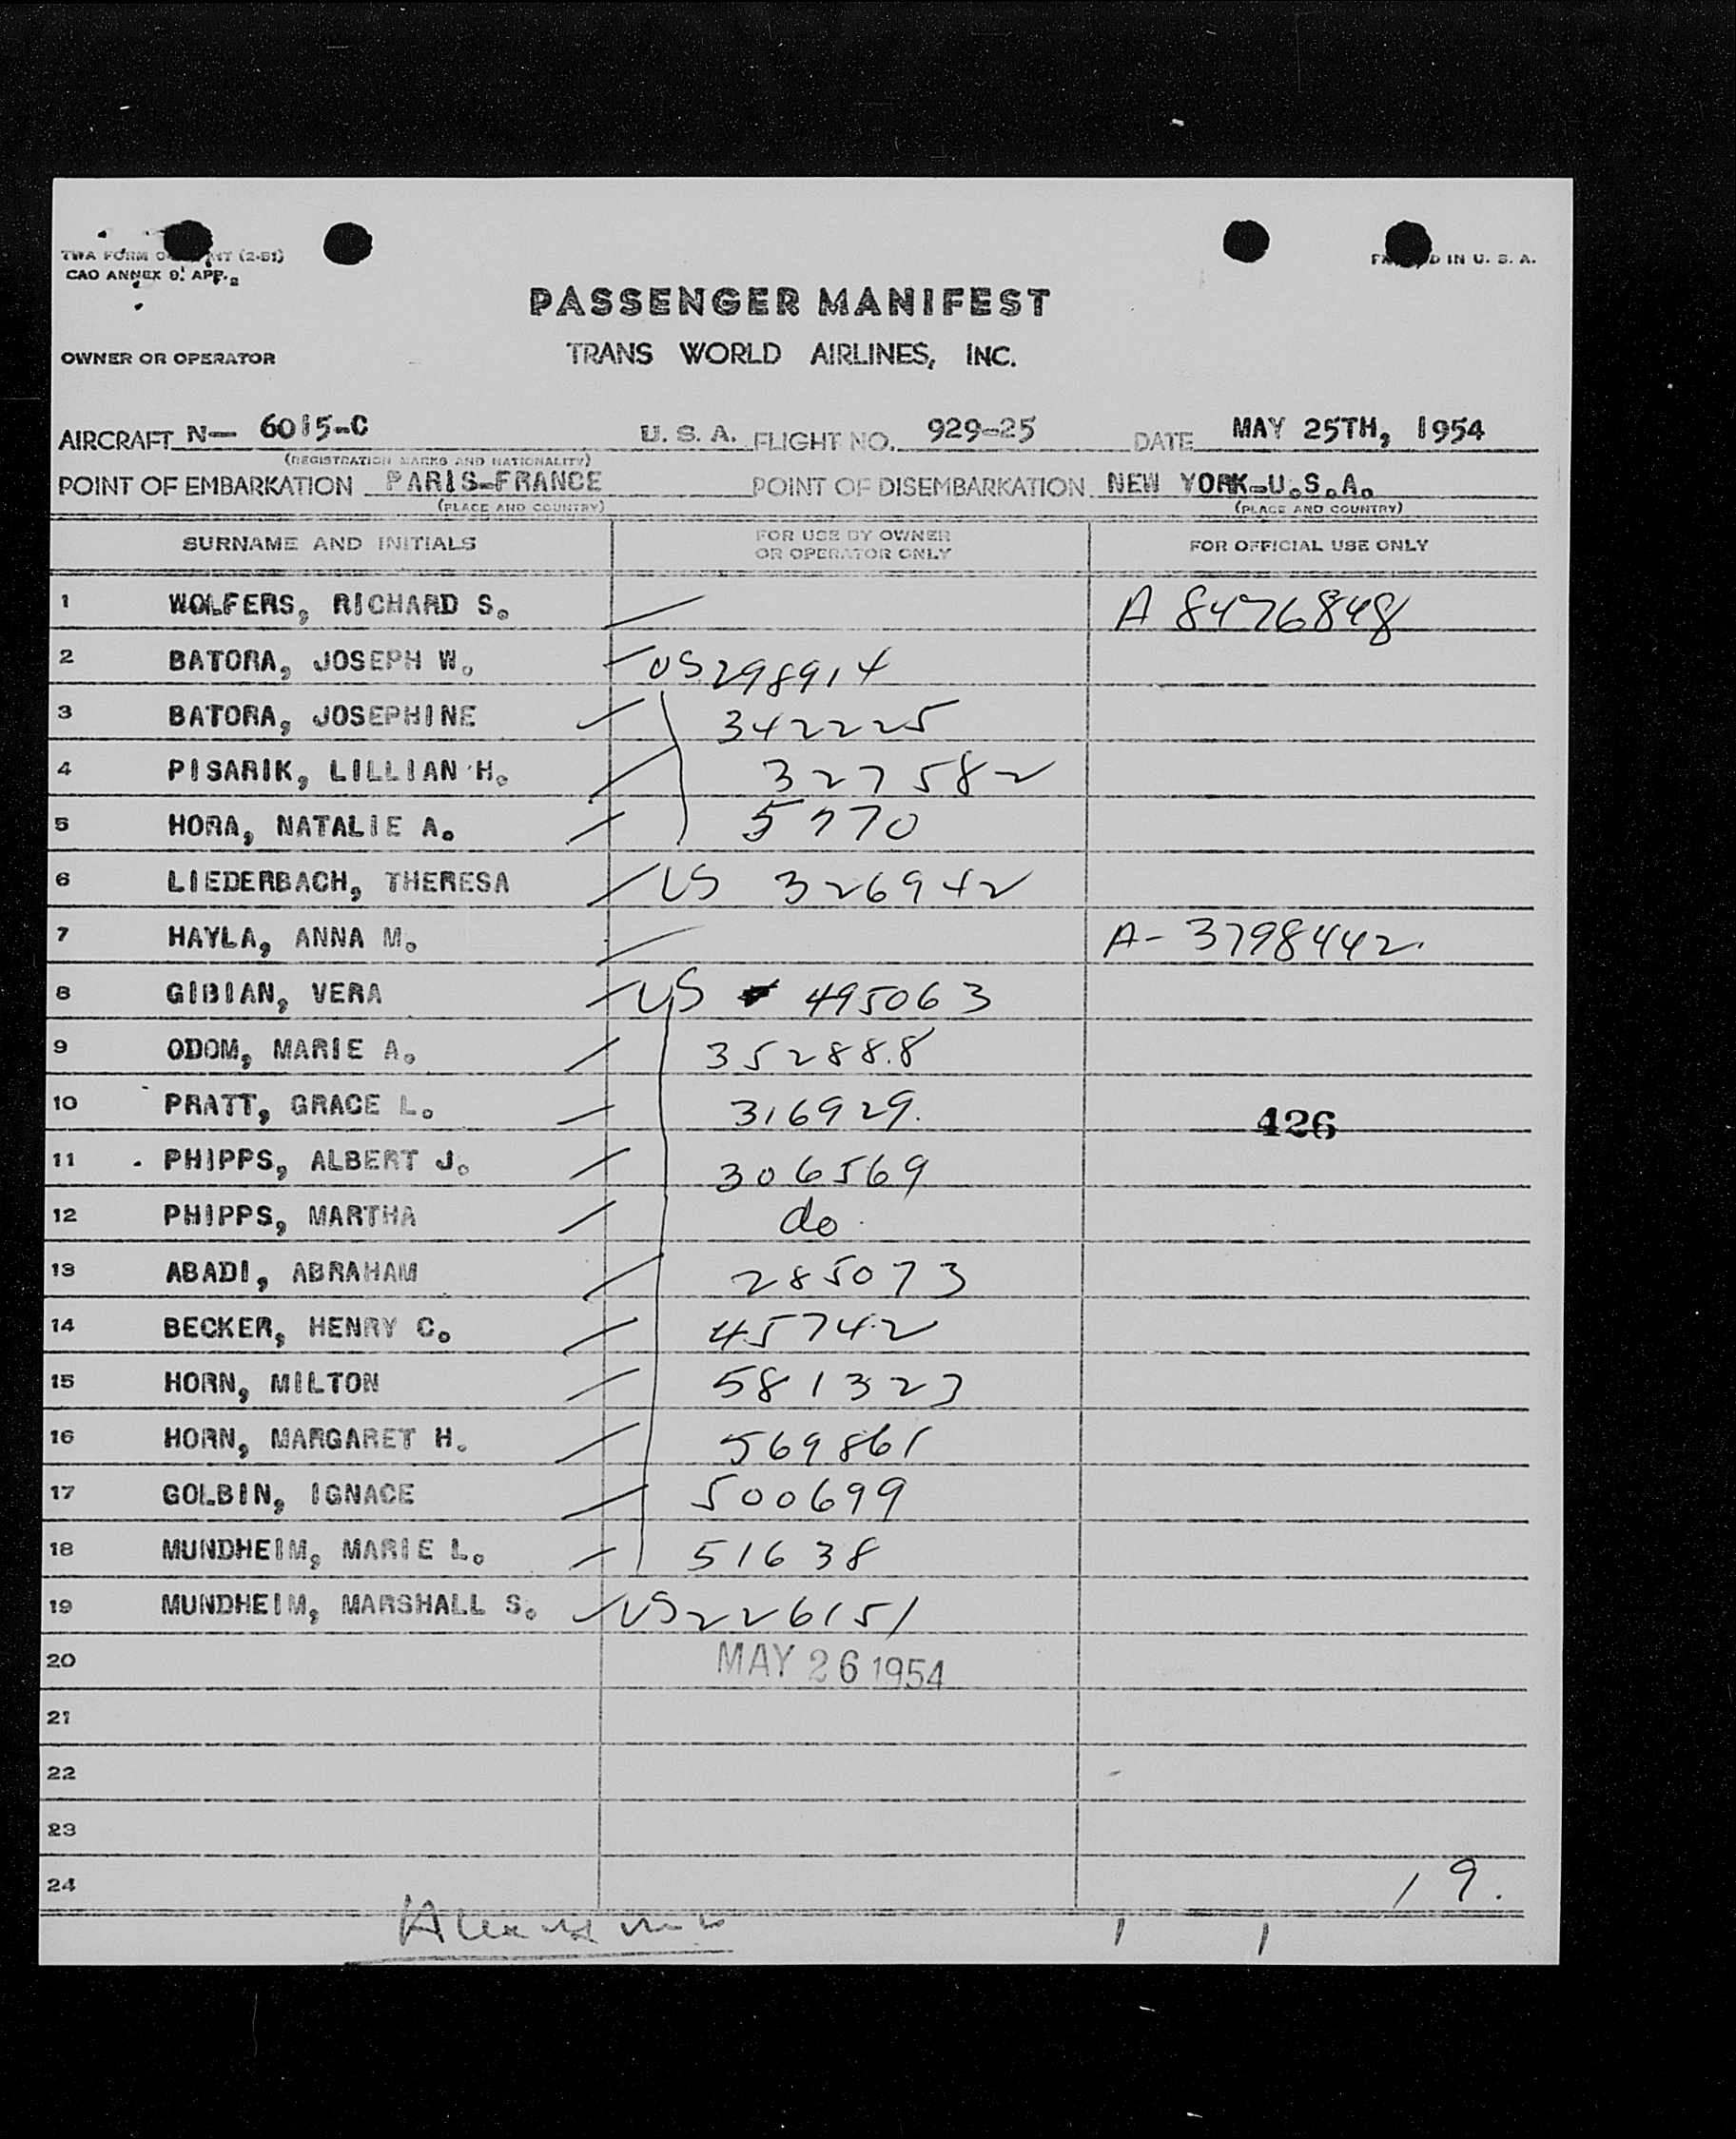 PASSENGER MANIFEST
CAO ANNEX 9, APP. 2
OWNER OR OPERATOR TRANS WORLD AIRLINES, INC.
AIRCRAFT N— 6015-C U. S. A. FLIGHT NO. 929-25 DATE MAY 25TH, 1954
(REGISTRATION MARKS AND NATIONALITY)
POINT OF EMBARKATION PARIS-FRANCE POINT OF DISEMBARKATION NEW YORK-U.S.A.
(PLACE AND COUNTRY) (PLACE AND COUNTRY)
SURNAME AND INITIALS FOR USE BY OWNER OR OPERATOR ONLY FOR OFFICIAL USE ONLY
1 WOLFERS, RICHARD S. A 8476848
2 BATORA, JOSEPH W. US 298914
3 BATORA, JOSEPHINE 342225
4 PISARIK, LILLIAN H. 327582
5 HORA, NATALIE A. 5770
6 LIEDERBACH, THERESA US 326942
7 HAYLA, ANNA M. A- 3798442
8 GIBIAN, VERA US 495063
9 ODOM, MARIE A. 352888
10 PRATT, GRACE L. 316929. 426
11 PHIPPS, ALBERT J. 306569
12 PHIPPS, MARTHA do
13 ABADI, ABRAHAM 285073
14 BECKER, HENRY C. 45742
15 HORN, MILTON 581323
16 HORN, MARGARET H. 569861
17 GOLBIN, IGNACE 500699
18 MUNDHEIM, MARIE L. 51638
19 MUNDHEIM, MARSHALL S. US 226151
20 MAY 26 1954
21
22
23
24 19.